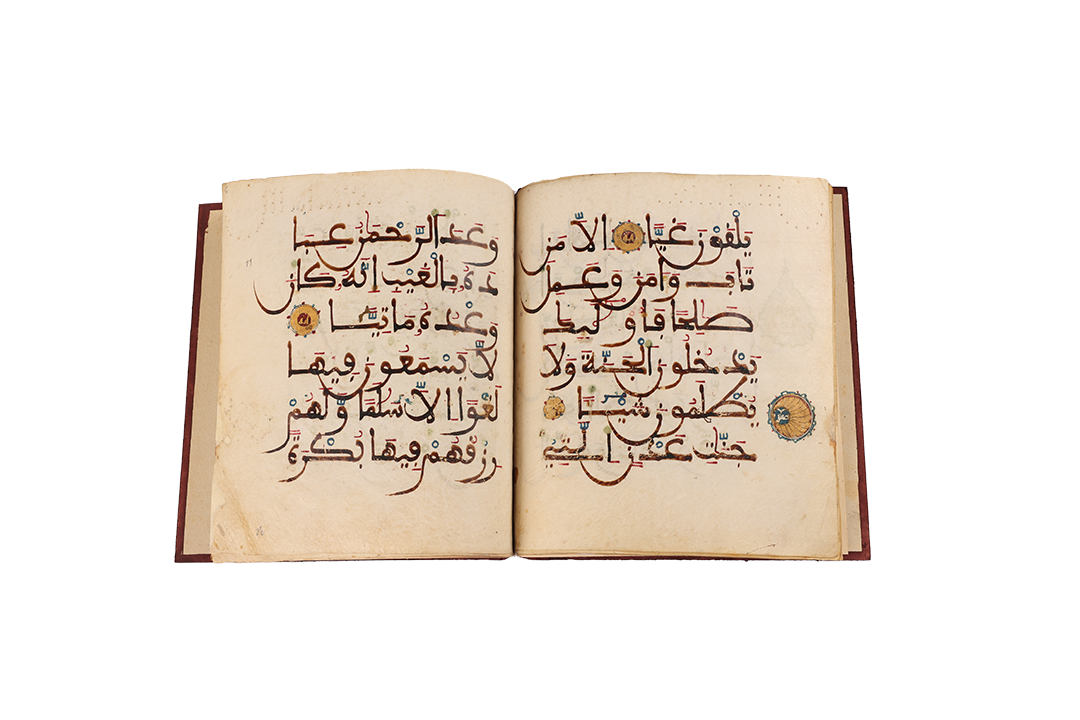 يَلْقَوْنَ غَيًّا اِلَّا مَن
تَابَ وَءَامَنَ وَعَمِلَ
صَٰلِحًا فَأُوْلَٰئِكَ
يَدْخُلُونَ الْجَنَّةَ وَلَا
يُظْلَمُونَ شَيْـًٔا
جَنَّٰتِ عَدْنٍ الَّتِي
وَعَدَ الرَّحْمَٰنُ عِبَا
دَهُ بِالْغَيْبِ إِنَّهُ كَانَ
وَعْدُهُ مَاتِيًّا
لَّا يَسْمَعُونَ فِيهَا
لَغْوًا اِلَّا سَلَٰمًا وَلَهُمْ
رِزْقُهُمْ فِيهَا بُكْرَةً